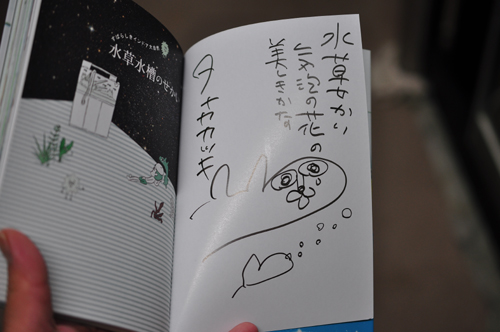 すばらしきインドア大自然
水草水槽のせかい
水草せかい
気泡の花の
美しきかな
タナカカツキ